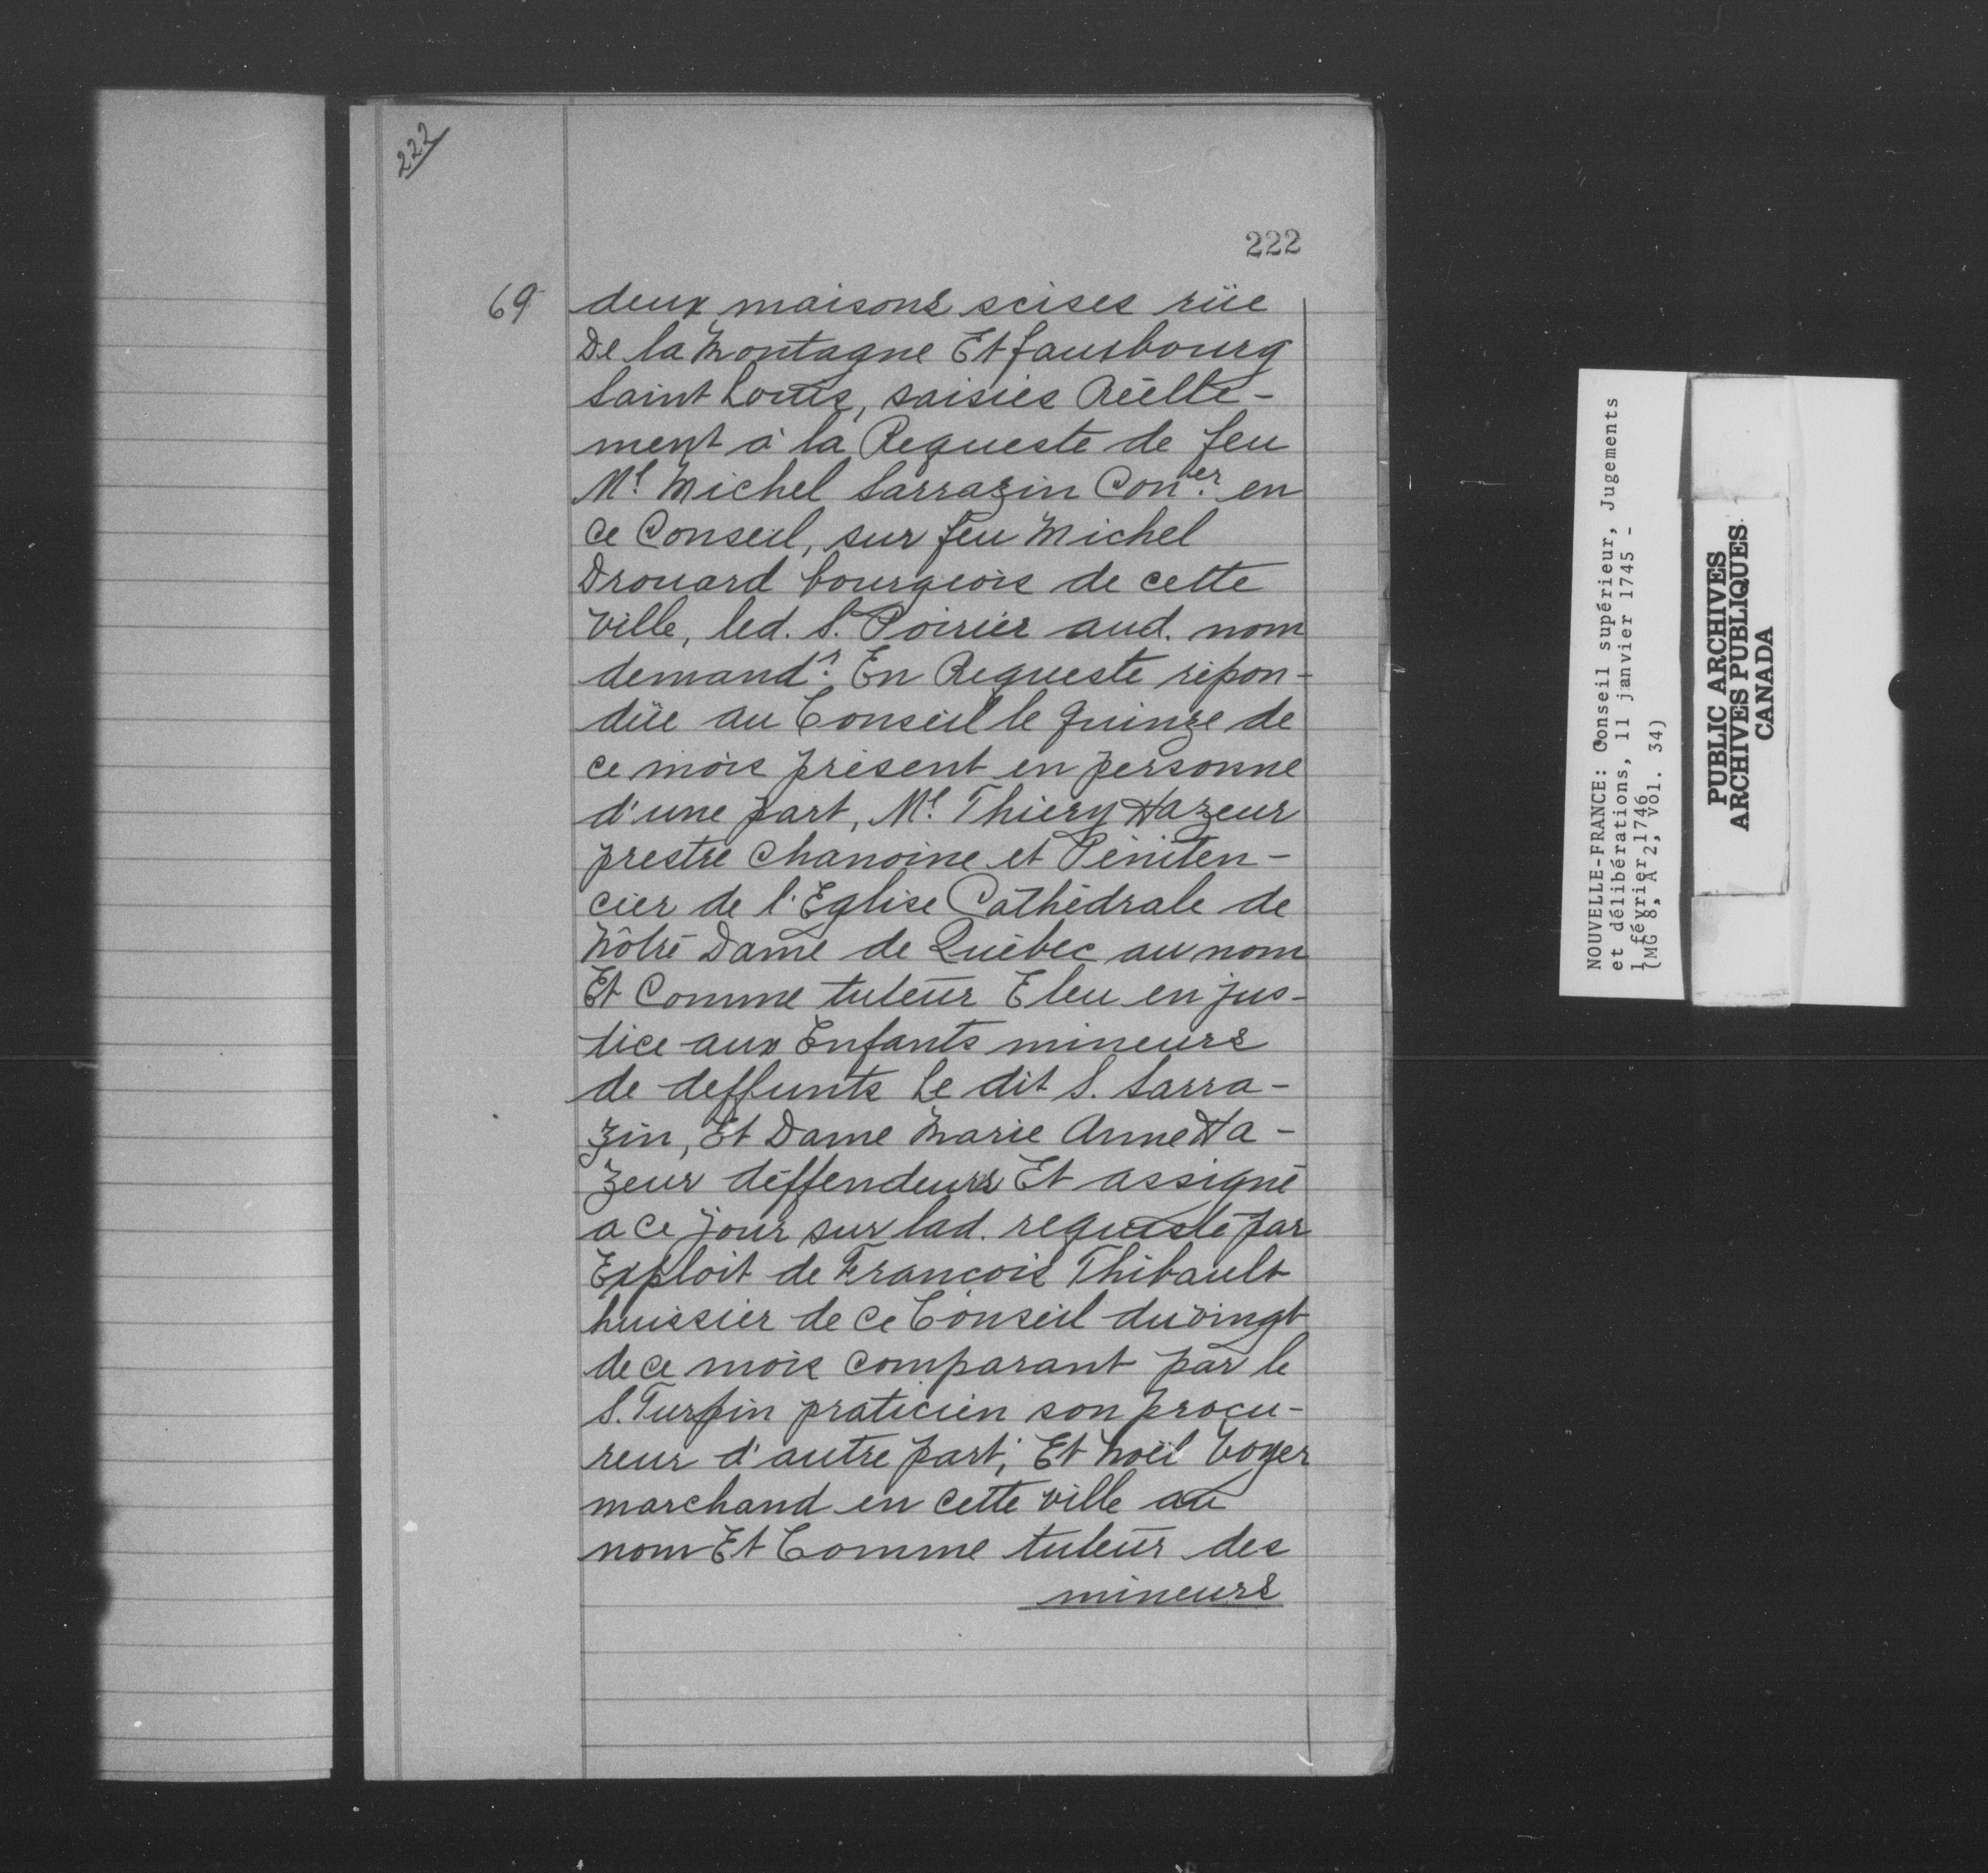 222
222
69 deux maisons scises rüe
De la Montagne Et fausbourg
Saint Louis, saisies Réelle-
ment à la Requeste de feu
Me. Michel Sarrazin Coner. en
ce Conseil, sur feu Michel
Drouard bourgeois de cette
ville, led. S. Poirier aud. nom
demandr. En Requeste répon-
düe au Conseil le quinze de
ce mois présent en personne
d'une part, Me. Thiery Hazeur
prestre chanoine et Péniten-
cier de l'Eglise Cathédrale de
Nôtre Dame de Québec au nom
Et Comme tuteur Eleu en jus-
tice aux Enfants mineurs
de deffunts Le dit S. Sarra-
zin, Et Dame Marie Anne Ha-
zeur déffendeurs Et assigné
a ce jour sur lad. requeste par
Exploit de François Thibault
huissier de ce Conseil du vingt
de ce mois comparant par le
S. Turpin praticien son procu-
reur d'autre part; Et Noël Voyer
marchand en cette ville au
nom Et Comme tuteur des
mineurs
NOUVELLE-FRANCE: Conseil supérieur, Jugements
et délibérations, 11 janvier 1745 -
1 février 1746
(MG 8, A 2, vol. 34)
PUBLIC ARCHIVES
ARCHIVES PUBLIQUES
CANADA